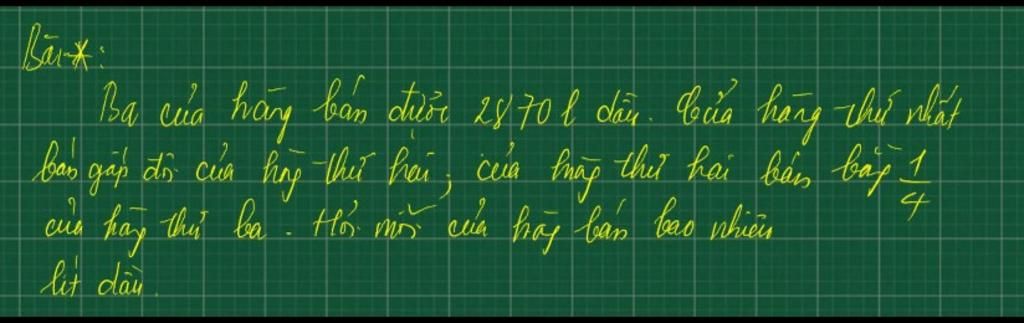 Bài *:
Ba cửa hàng bán được 2870 l dầu. Cửa hàng thứ nhất
bán gấp đôi cửa hàng thứ hai, cửa hàng thứ hai bán bằng 1/4
cửa hàng thứ ba. Hỏi mỗi cửa hàng bán bao nhiêu
lít dầu.